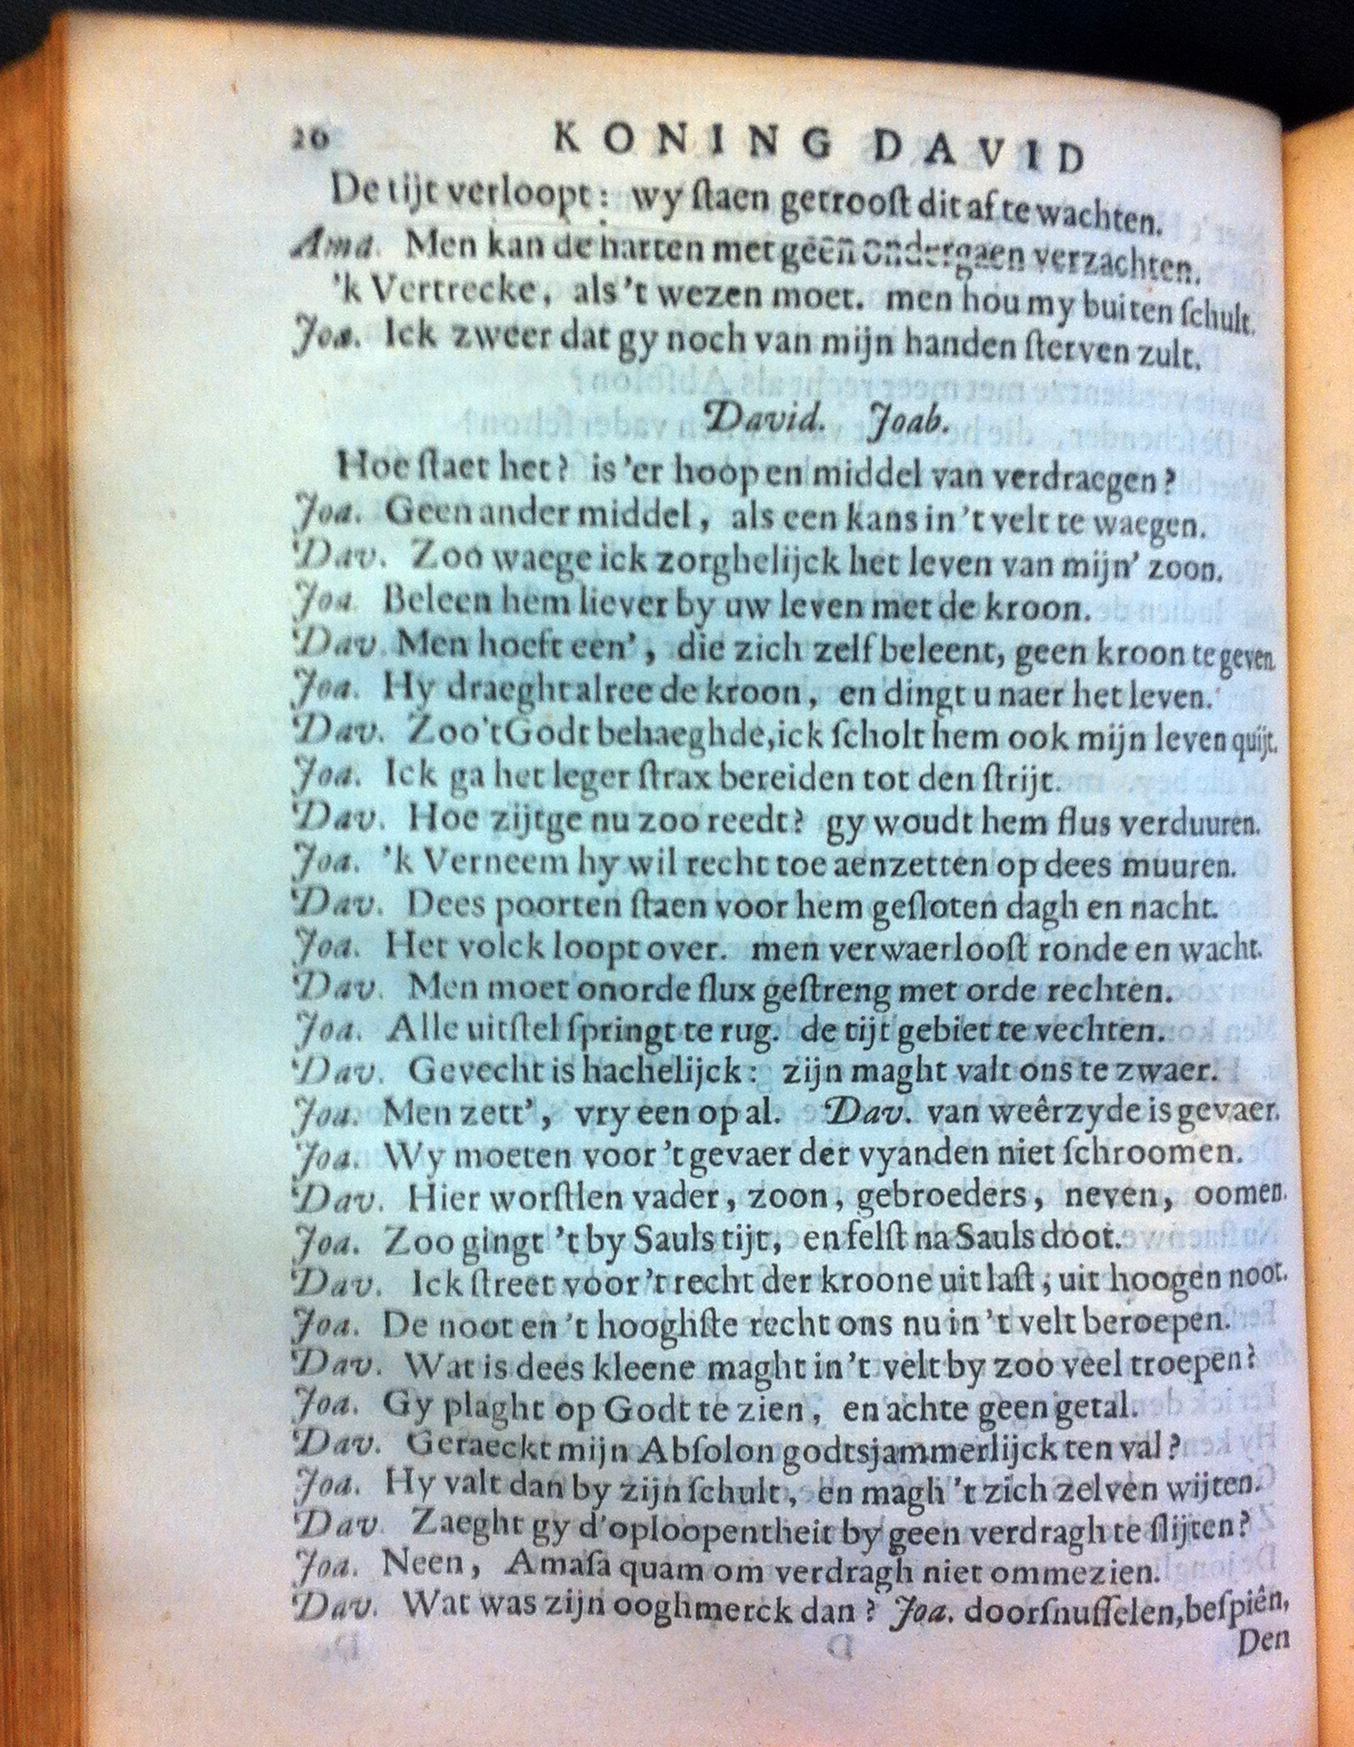 20 KONING DAVID
De tijt verloopt: wy ſtaen getrooſt dit af te wachten.
Ama. Men kan de harten met geen ondergaen verzachten.
'k Vertrecke, als 't wezen moet. men hou my buiten ſchult.
Joa. Ick zweer dat gy noch van mijn handen ſterven zult.
David. Joab.
Hoe ſtaet het? is 'er hoop en middel van verdraegen?
Joa. Geen ander middel, als een kans in 't velt te waegen.
Dav. Zoo waege ick zorghelijck het leven van mijn' zoon.
Joa. Beleen hem liever by uw leven met de kroon.
Dav. Men hoeft een', die zich zelf beleent, geen kroon te geven.
Joa. Hy draeght alree de kroon, en dingt u naer het leven.
Dav. Zoo 't Godt behaeghde, ick ſcholt hem ook mijn leven quijt.
Joa. Ick ga het leger ſtrax bereiden tot den ſtrijt.
Dav. Hoe zijtge nu zoo reedt? gy woudt hem flus verduuren.
Joa. 'k Verneem hy wil recht toe aenzetten op dees muuren.
Dav. Dees poorten ſtaen voor hem geſloten dagh en nacht.
Joa. Het volck loopt over. men verwaerlooſt ronde en wacht.
Dav. Men moet onorde flux geſtreng met orde rechten.
Joa. Alle uitſtel ſpringt te rug. de tijt gebiet te vechten.
Dav. Gevecht is hachelijck: zijn maght valt ons te zwaer.
Joa. Men zett', vry een op al. Dav. van weêrzyde is gevaer.
Joa. Wy moeten voor 't gevaer der vyanden niet ſchroomen.
Dav. Hier worſtlen vader, zoon, gebroeders, neven, oomen.
Joa. Zoo gingt 't by Sauls tijt, en felſt na Sauls doot.
Dav. Ick ſtreet voor 't recht der kroone uit laſt, uit hoogen noot.
Joa. De noot en 't hooghſte recht ons nu in 't velt beroepen.
Dav. Wat is dees kleene maght in 't velt by zoo veel troepen?
Joa. Gy plaght op Godt te zien, en achte geen getal.
Dav. Geraeckt mijn Abſolon godtsjammerlijck ten val?
Joa. Hy valt dan by zijn ſchult, en magh 't zich zelven wijten.
Dav. Zaeght gy d'oploopentheit by geen verdragh te ſlijten?
Joa. Neen, Amaſa quam om verdragh niet ommezien.
Dav. Wat was zijn ooghmerck dan? Joa. doorſnuffelen, beſpiên,
Den